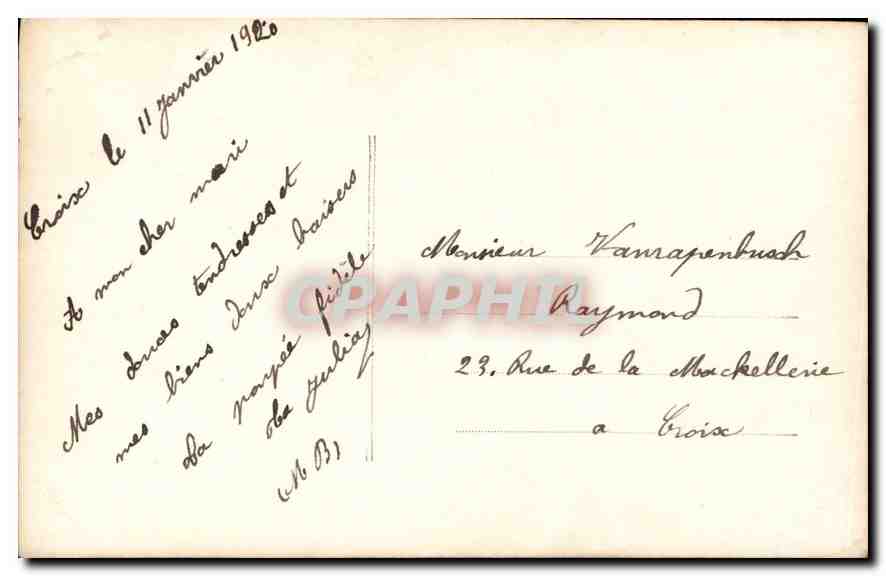 Croix le 11 Janvier 1920
A mon cher mari
Mes douces tendresses et
mes biens doux baisers
La poupée fidèle
La Julia
M B
CPAPHIL
Monsieur Vanrapenbusch
Raymond
23. Rue de la Mackellerie
a Croix